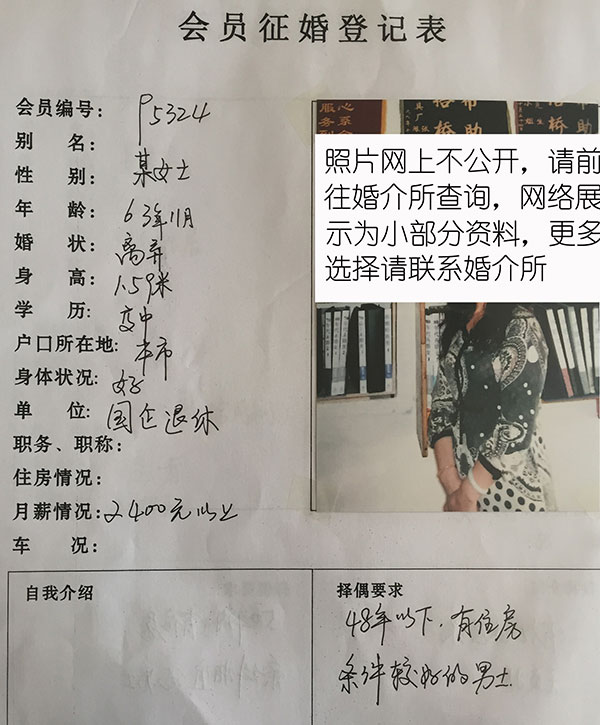 会员征婚登记表
会员编号: P5324
别 名:
性 别: 某女士
年 龄: 63年11月
婚 状: 离异
身 高: 1.59米
学 历: 高中
户口所在地: 本市
身体状况: 好
单 位: 国企退休
职务、职称:
住房情况:
月薪情况: 2400元以上
车 况:
照片网上不公开，请前
往婚介所查询，网络展
示为小部分资料，更多
选择请联系婚介所
自我介绍
择偶要求
48年以下.有住房
条件较好的男士.